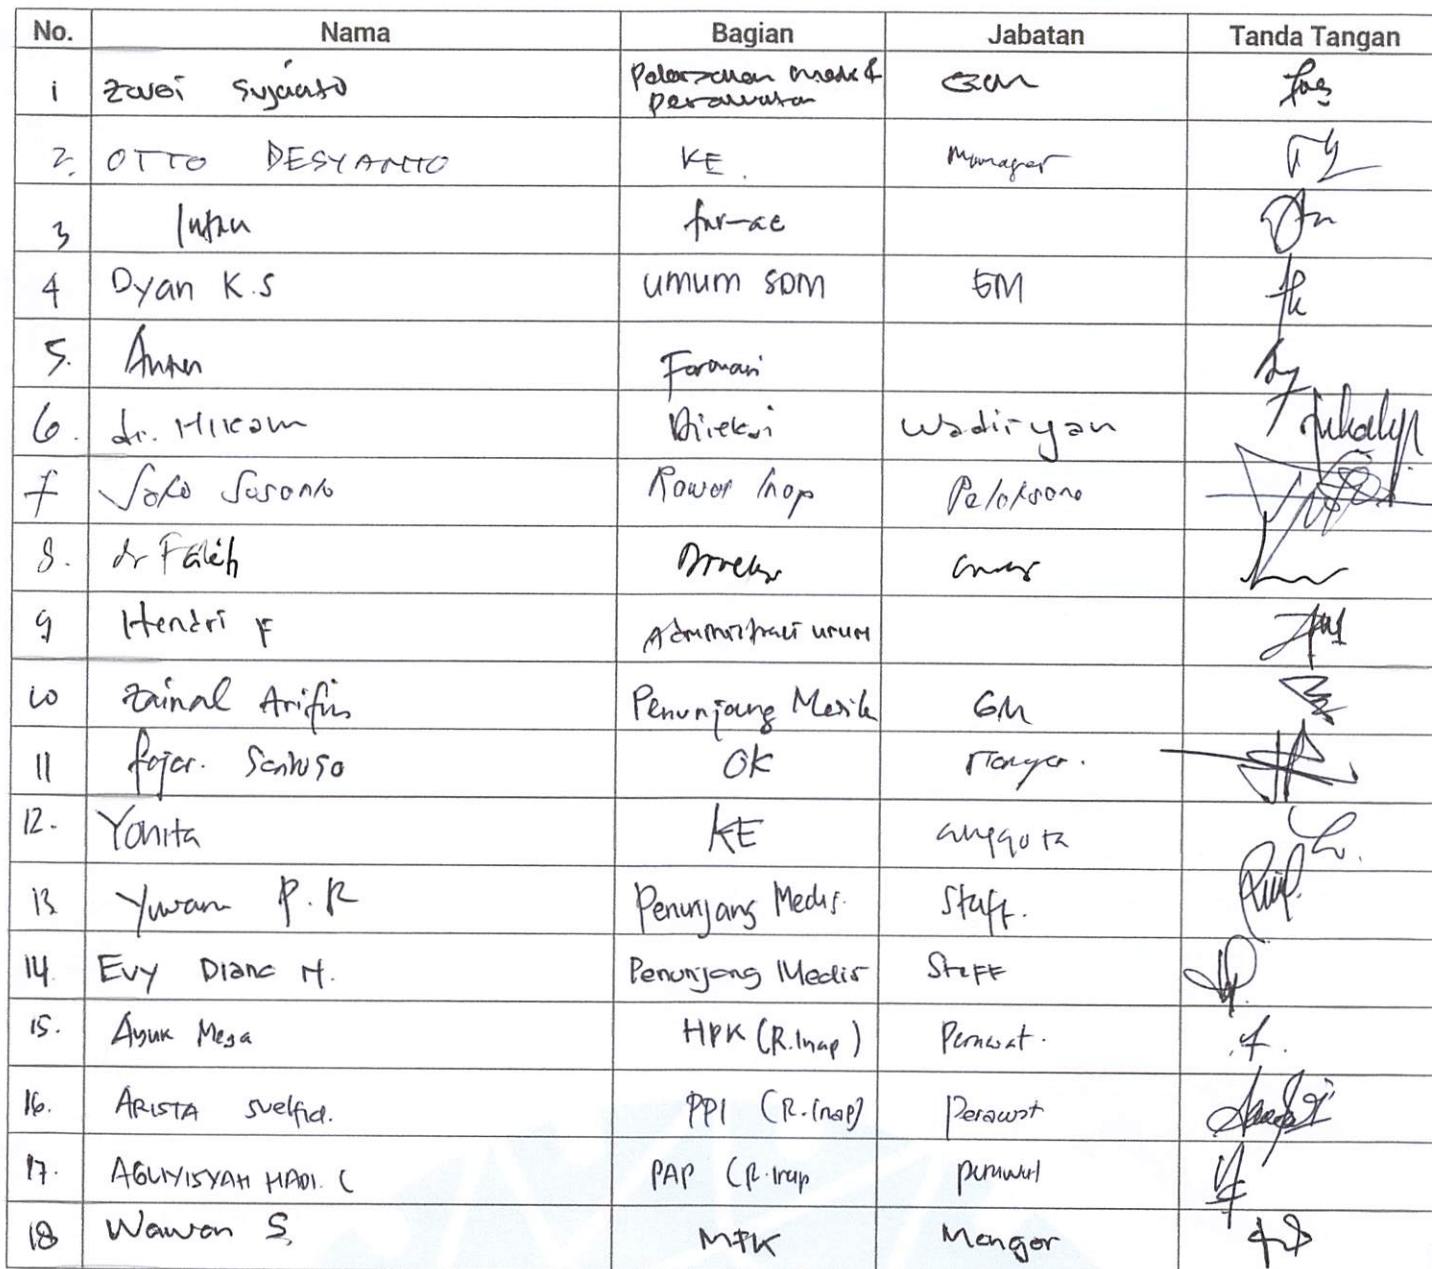 No. Nama Bagian Jabatan Tanda Tangan
1 Sujianto
perawatan
2. OTTO DESYANTO KE. Manager
3
4 Dyan K.S umum SDM GM
5. Farmasi
6. dr. Hikam Direksi Wadiryan
7 Joko Susanto Rawat Inap Pelaksana
8. dr Faleh
9 Hendri F Administrasi umum
10 Zainal Arifin Penunjang Medik GM
11 Fajar. Santoso OK
12. Yonita KE anggota
13 Yuwan P.R Penunjang Medis. Staff.
14. Evy Diana H. Penunjang Medis Staff
15. Ayuk Mega HPK (R.Inap) Perawat.
16. ARISTA PPI (R.Inap) Perawat
17. HADI. C PAP (R.Inap
18 Wawan S